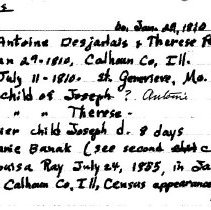 s
bo. Jan 29, 1810
Antoine Desjarlais & Therese
an 29-1810, Calhoun Co, Ill.
July 11-1810- St. Genevieve, Mo.
Child of Joseph ? Antoine
" " Therese-
her child Joseph d. 8 days
arie Banak (see second c
ouisa Ray July 24, 1855, in Ja
Calhoun Co, Ill, Census appearance